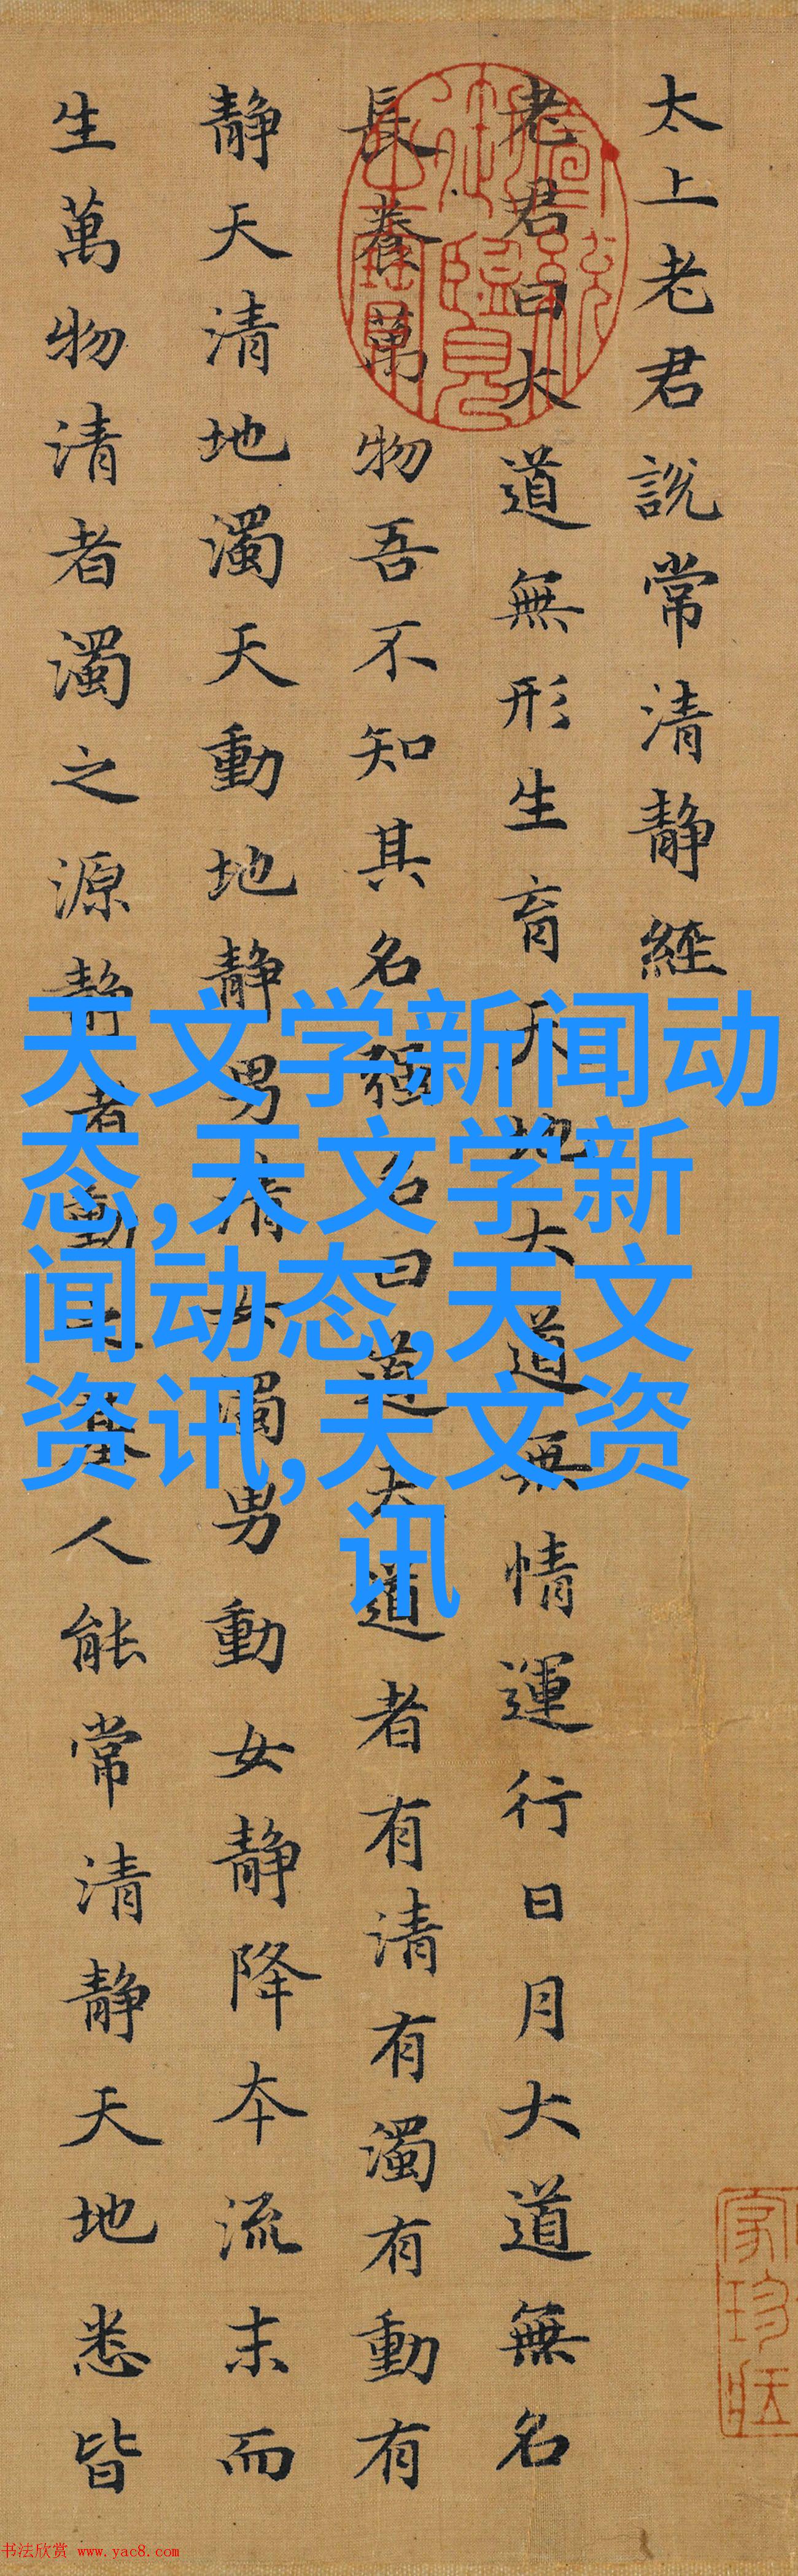 太上老君說常清靜經
老君曰大道無形生育天地大道無情運行日月大道無名
長養萬物吾不知其名强名曰道夫道者有清有濁有動有
靜天清地濁天動地靜男清女濁男動女靜降本流末而
生萬物清者濁之源靜者動之基人能常清靜天地悉皆
天文学新闻动
态,天文学新
闻动态,天文
资讯,天文资
讯
书法欣赏 www.yac8.com